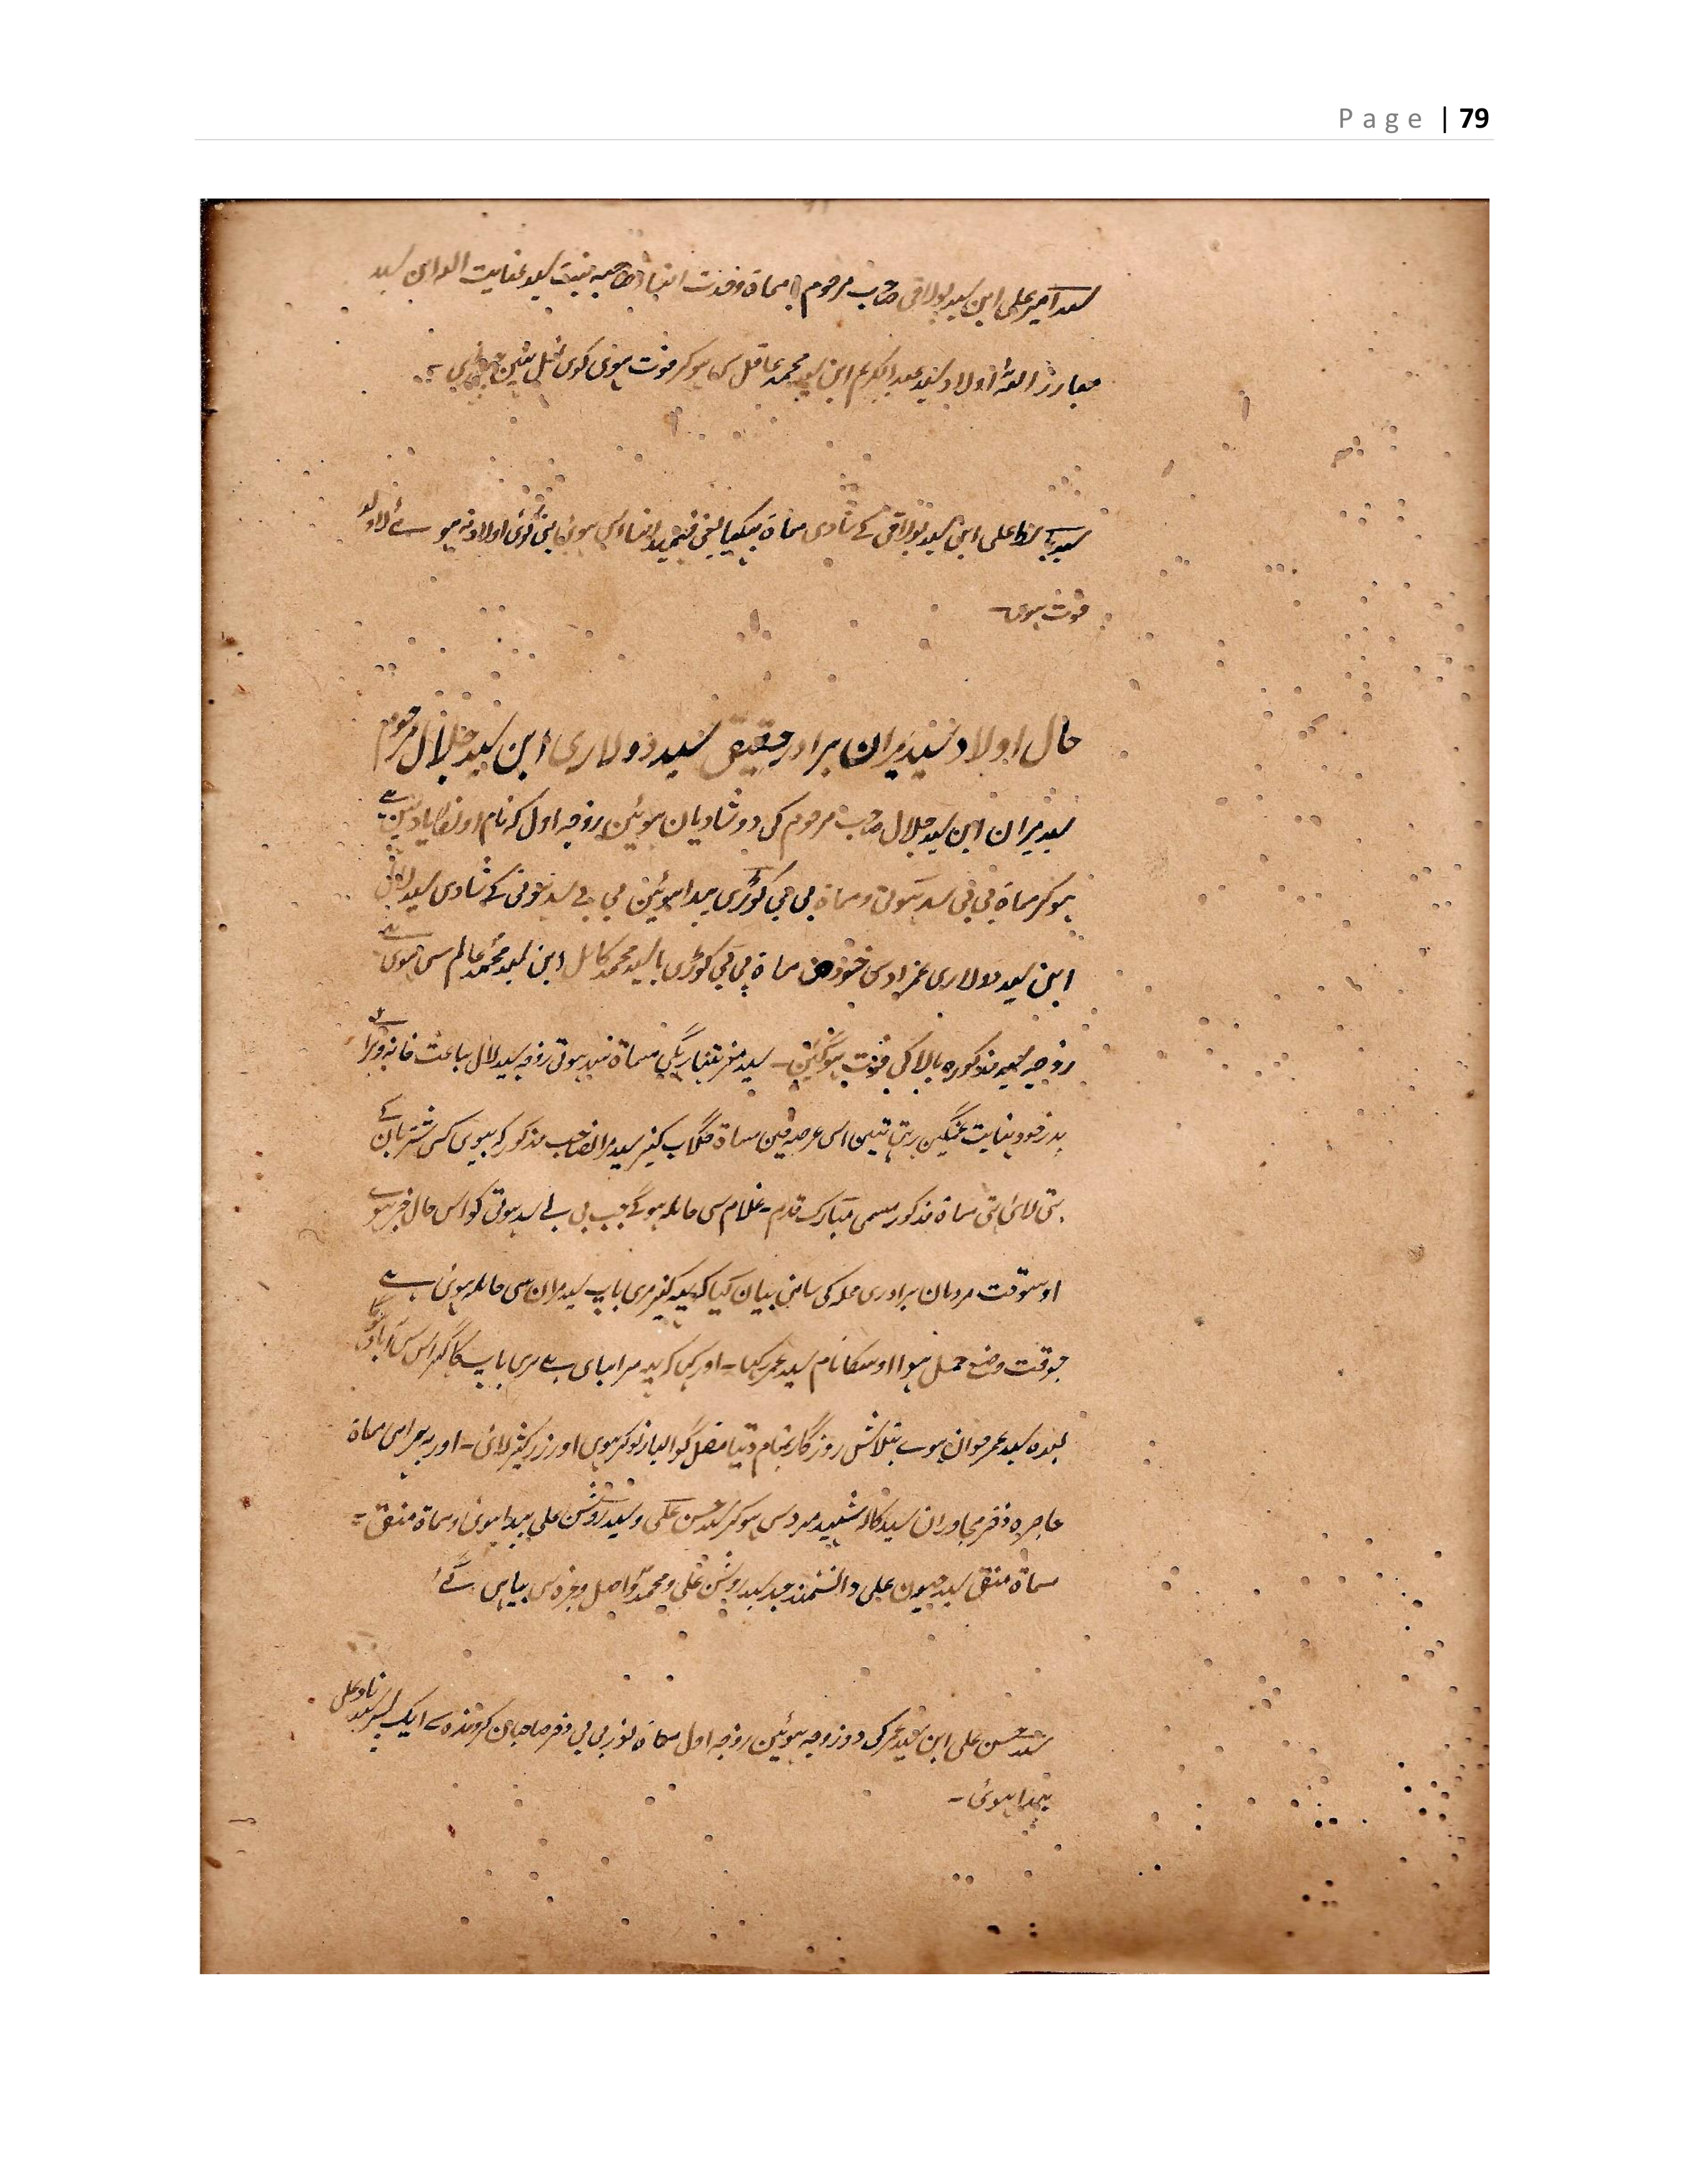 Page | 79
سید امیر علی ابن سید بولاقی صاحب مرحوم با مسماة بنت سید عنایت اللہ ابن سید
مبارز اللہ اولاد سید عبد الکریم ابن سید محمد عاقل سی ہوکر فوت ہوی کوی نسل نہین
سید علی ابن سید بولاقی کے شادی مسماة یعنی کوئی اولاد نہ ہوئے لاولد
فوت ہوی
حال اولاد سید میران برادر حقیقی سید دولاری ابن سید جلال مرحوم
سید میران ابن سید جلال صاحب مرحوم کی دو شادیان ہوئین زوجہ اول کہ نام اونکا یاد نہین ہے
ہوکر مسماة بی بی سید ہوتی و مسماة بی بی کوڑی پیدا ہوئین بی بی سید ہوتی کے شادی سید لال
ابن سید دولاری عمزاد سی خود مسماة بی بی کوڑی با سید محمد کامل ابن سید محمد عالم سی ہوی ہے
زوجہ سید مذکورہ بالا کی فوت ہوگئین - سید مسماة سید ہوتی زوجہ سید لال بباعث خانہ ویرانی
پدر خود نہایت غمگین رہتی تہین اس عرصہ مین مسماة گلاب کنیز سید میران صاحب مذکور کہ بیوی کس شتربان کے
تہی لائی تہی مسماة مذکور مسمی مبارک قدم - غلام سی حاملہ ہوگے جب بی بی سید ہوتی کو اس حال خبر ہوے
اوسوقت مردمان برادری محلہ کی سامنی بیان کیا کہ یہہ کنیز مری باپ سید میران سی حاملہ ہوئی ہے
جوقت وضع حمل ہوا اوسکا نام سید عمر رکہا - اور کہا کہ یہہ مرا بہای ہے مری باپ کا گہر اس سی آباد ہوگا
بعدہ سید عمر جوان ہوے بتلاش روزگار بمقام دتیا متصل گوالیار نوکر ہوی اور زر کثیر لائی - اور بہ ہمراہی مسماة
عاجرہ دختر مجاوران سید کالا شہید مرد سی ہوکر سید حسن علی و سید روشن علی پیدا ہوئی و مسماة منقی -
مسماة منقی سید جیون علی دانشمند جد سید روشن علی و محمد واصل وغیرہ سی بیاہی گے
سید حسن علی ابن سید عمر کی دو زوجہ ہوئین زوجہ اول مسماة نور بی بی دختر صاحبان سے ایک پسر سید نادعلی
پیدا ہوئی -